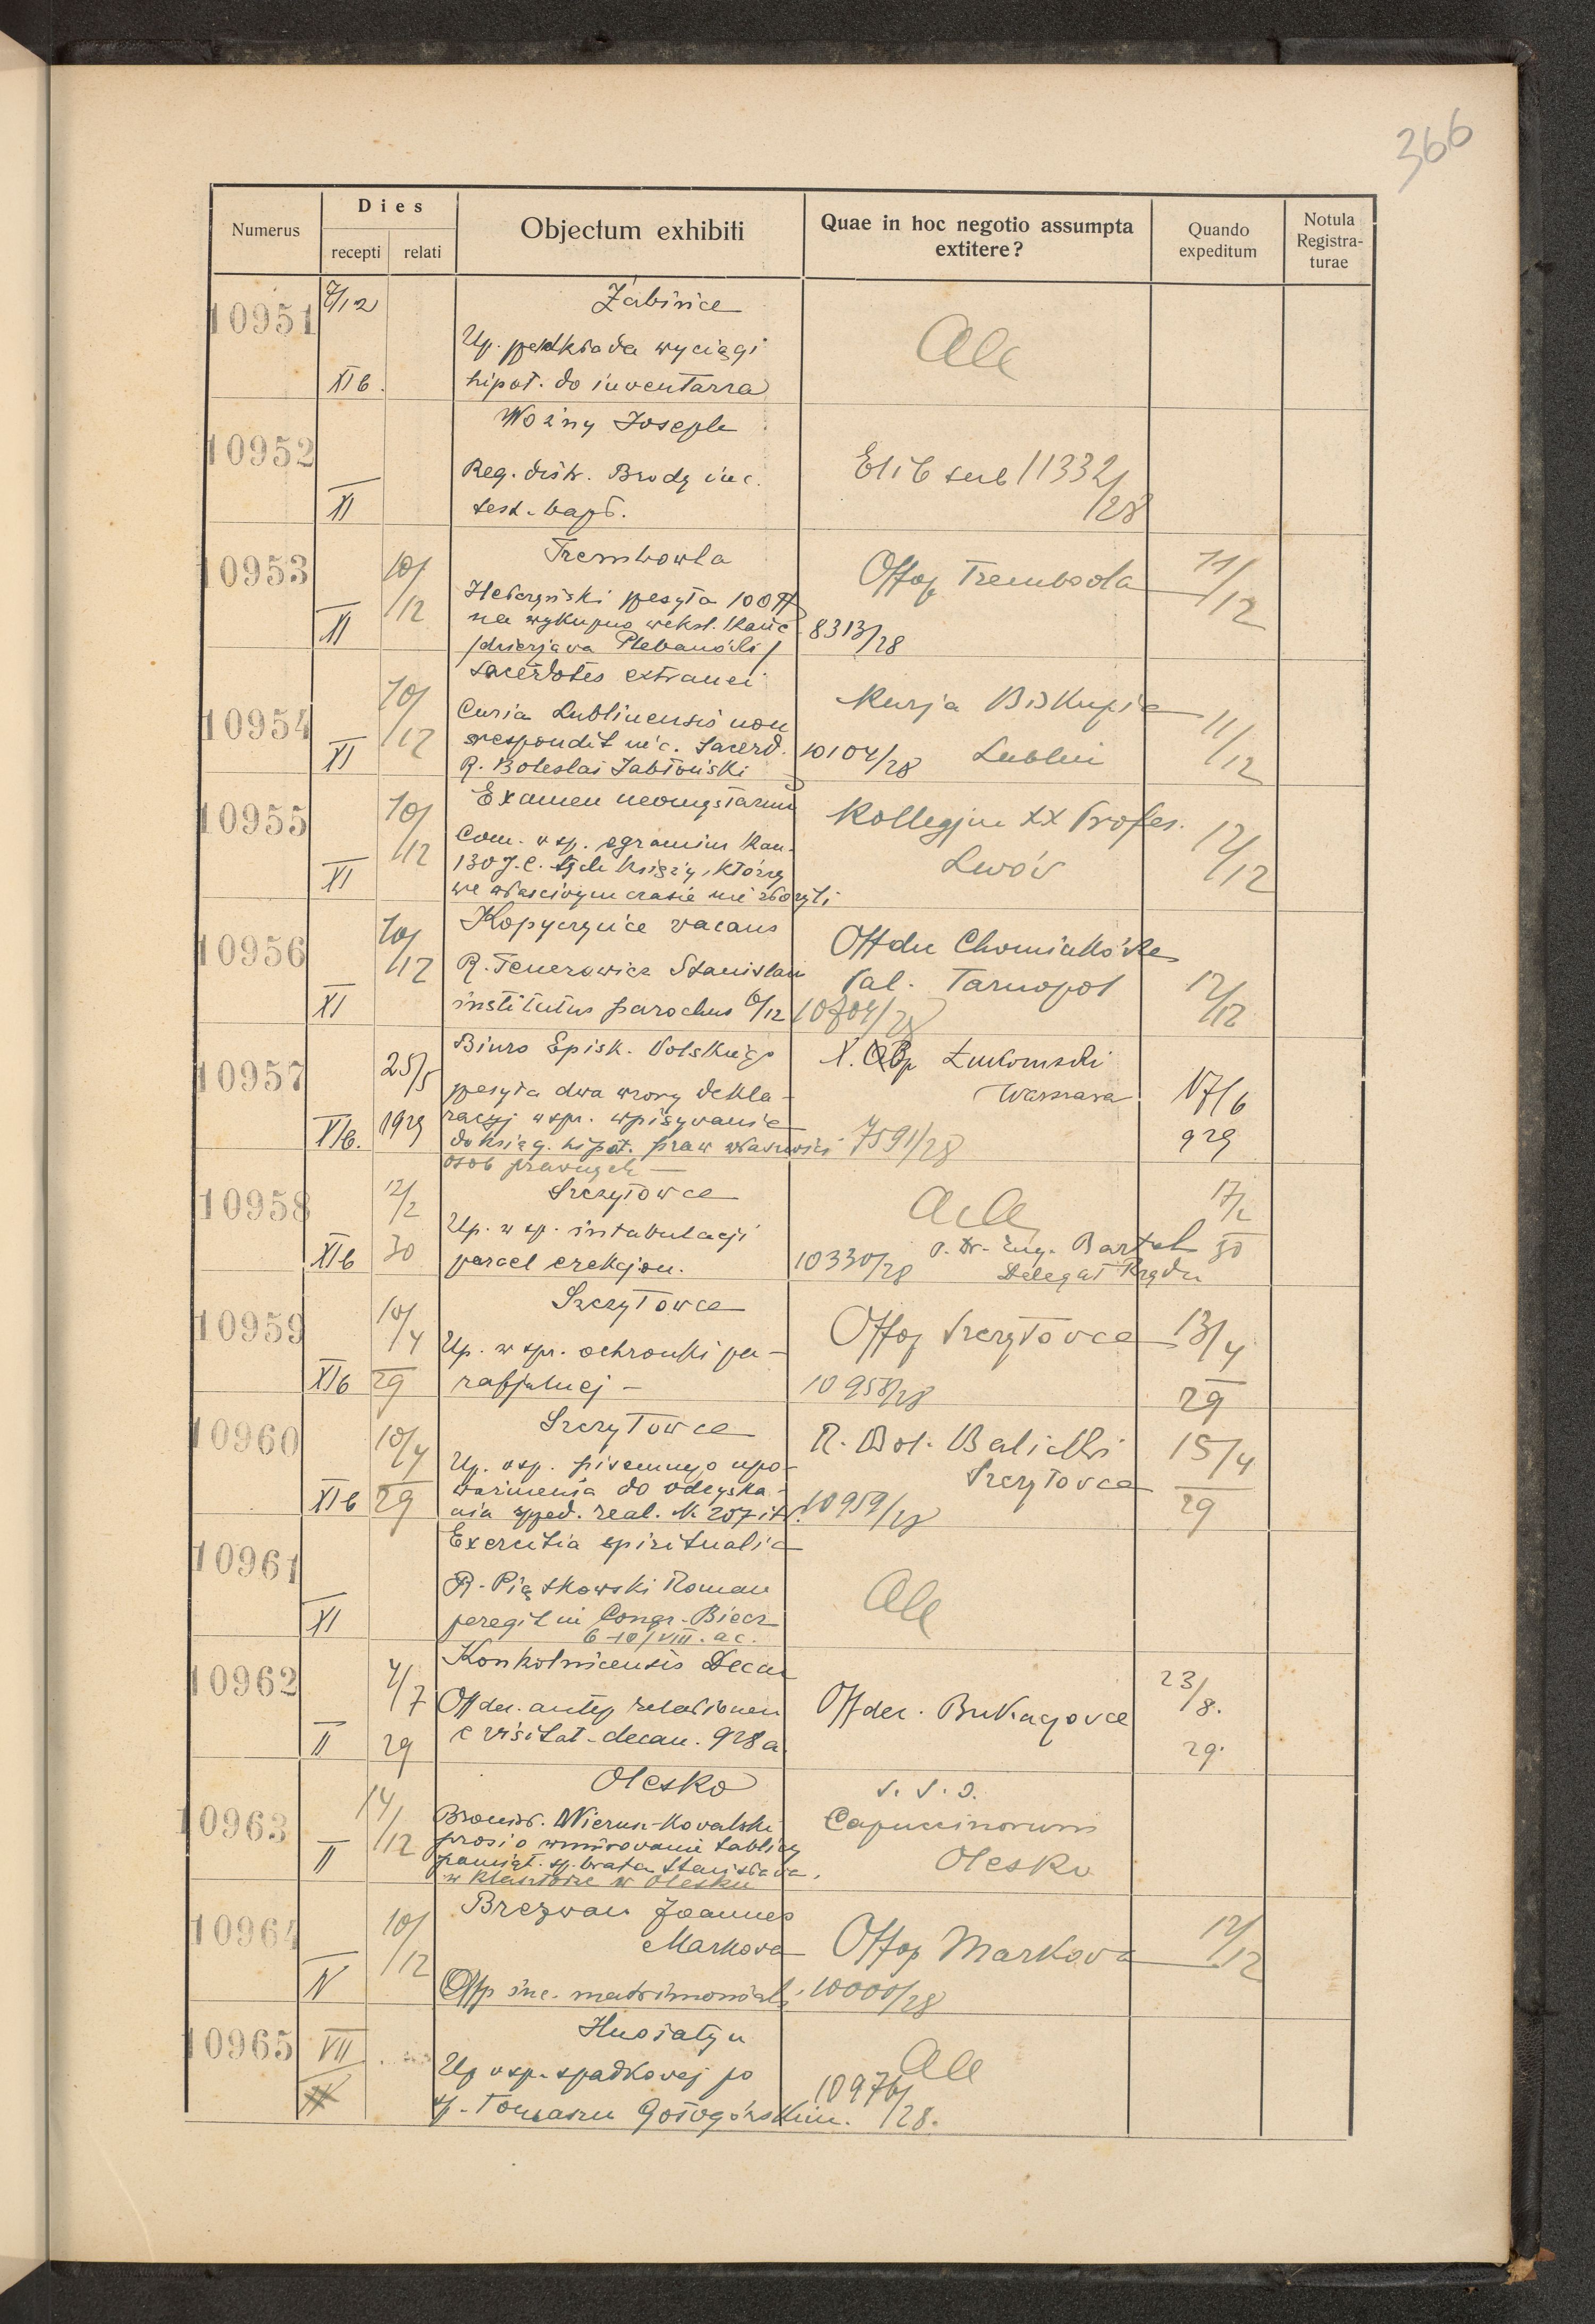 366
Numerus
Dies
recepti relati
Objectum exhibiti
Quae in hoc negotio assumpta
extitere?
Quando
expeditum
Notula
Registra-
turae
10951 7/12
Żabińce
Up. przedkłada wyciągi
XIb. hipot. do inwentarza
Ale
10952
Woźny Joseph
Reg. distr. Brody inc.
XI test. bapt.
Elib sub 11332/28
10953 10/12
Trembowla
pesyła 100 zł
na wykupno weksl. kauc
XI /dzierżawa Plebanówki/
Offoq Trembowla 11/12
8313/28
10954 10/12
Sacerdotes extranei
Curia Lublinensis non
respondit inc. sacerd.
XI R. Boleslai Jabłoński
Kurja Biskupia
10104/28 Lublin 11/12
10955 10/12
Examen neomystarum
Com. w sp. egzaminu kan.
130 J.C. tych księży, którzy
XI we właściwym czasie nie złożyli
Kollegjum XX Profes.
Lwów 12/12
10956 10/12
Kopyczyńce vacans
R. Tenerowicz Stanislau
XI institutus parochus 6/12
Offdec Chomiakówka
Val. Tarnopol 12/12
10704/28
10957 25/5
Biuro Episk. Polskiego
pesyła dwa wzory dekla-
XIb. 1929 racyj w spr. wpisywania
do ksiąg. hipot. praw własności
osób prawnych —
X. Bp Łukomski
Warszawa 17/6
7591/28 929
10958 12/2
Szczytowce
Up. w sp. intabulacji
XIb 30 parcel erekcjon.
Ale 17/2
10330/28 P. Dr. Eug. Bartel 30
Delegat Rządu
10959 10/4
Szczytowce
Up. w spr. ochronki pa-
XIb 29 rafjalnej —
Offoq Szczytowce 13/4
10958/28 29
10960 10/4
Szczytowce
Up. w sp. pisemnego upo-
ważnienia do odzyska-
XIb 29 nia sprzed. real. № 207 itd.
R. Bol. Balicki 15/4
Szczytowce
10959/28 29
10961
Exercitia spiritualia
R. Piątkowski Roman
XI peregit in Congr. Biecz
6-10/VIII. a c.
Ale
10962 4/7
Konkolnicensis Decan
Offdec. antep relationem
II 29 e visitat. decan. 928 a.
Offdec. Bukaczowce 23/8.
29.
10963 14/12
Olesko
Bronisł. Wierusz-Kowalski
prosi o wmurowanie tablicy
II pamiąt. śp. brata Stanisława,
w klasztorze w Olesku
Capuccinorum
Olesko
10964 10/12
Brezwan Joannes
Markowa
IV Offp inc. matrimonial.
Offop Markowa 12/12
10000/28
10965 VII
Husiatyn
Up w sp. spadkowej po
śp. Tomaszu Gołogórskim.
Ale
10976/28.